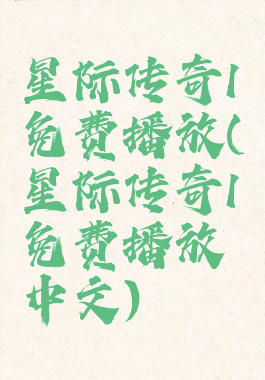 星际传奇1
免费播放(
星际传奇1
免费播放
中文)